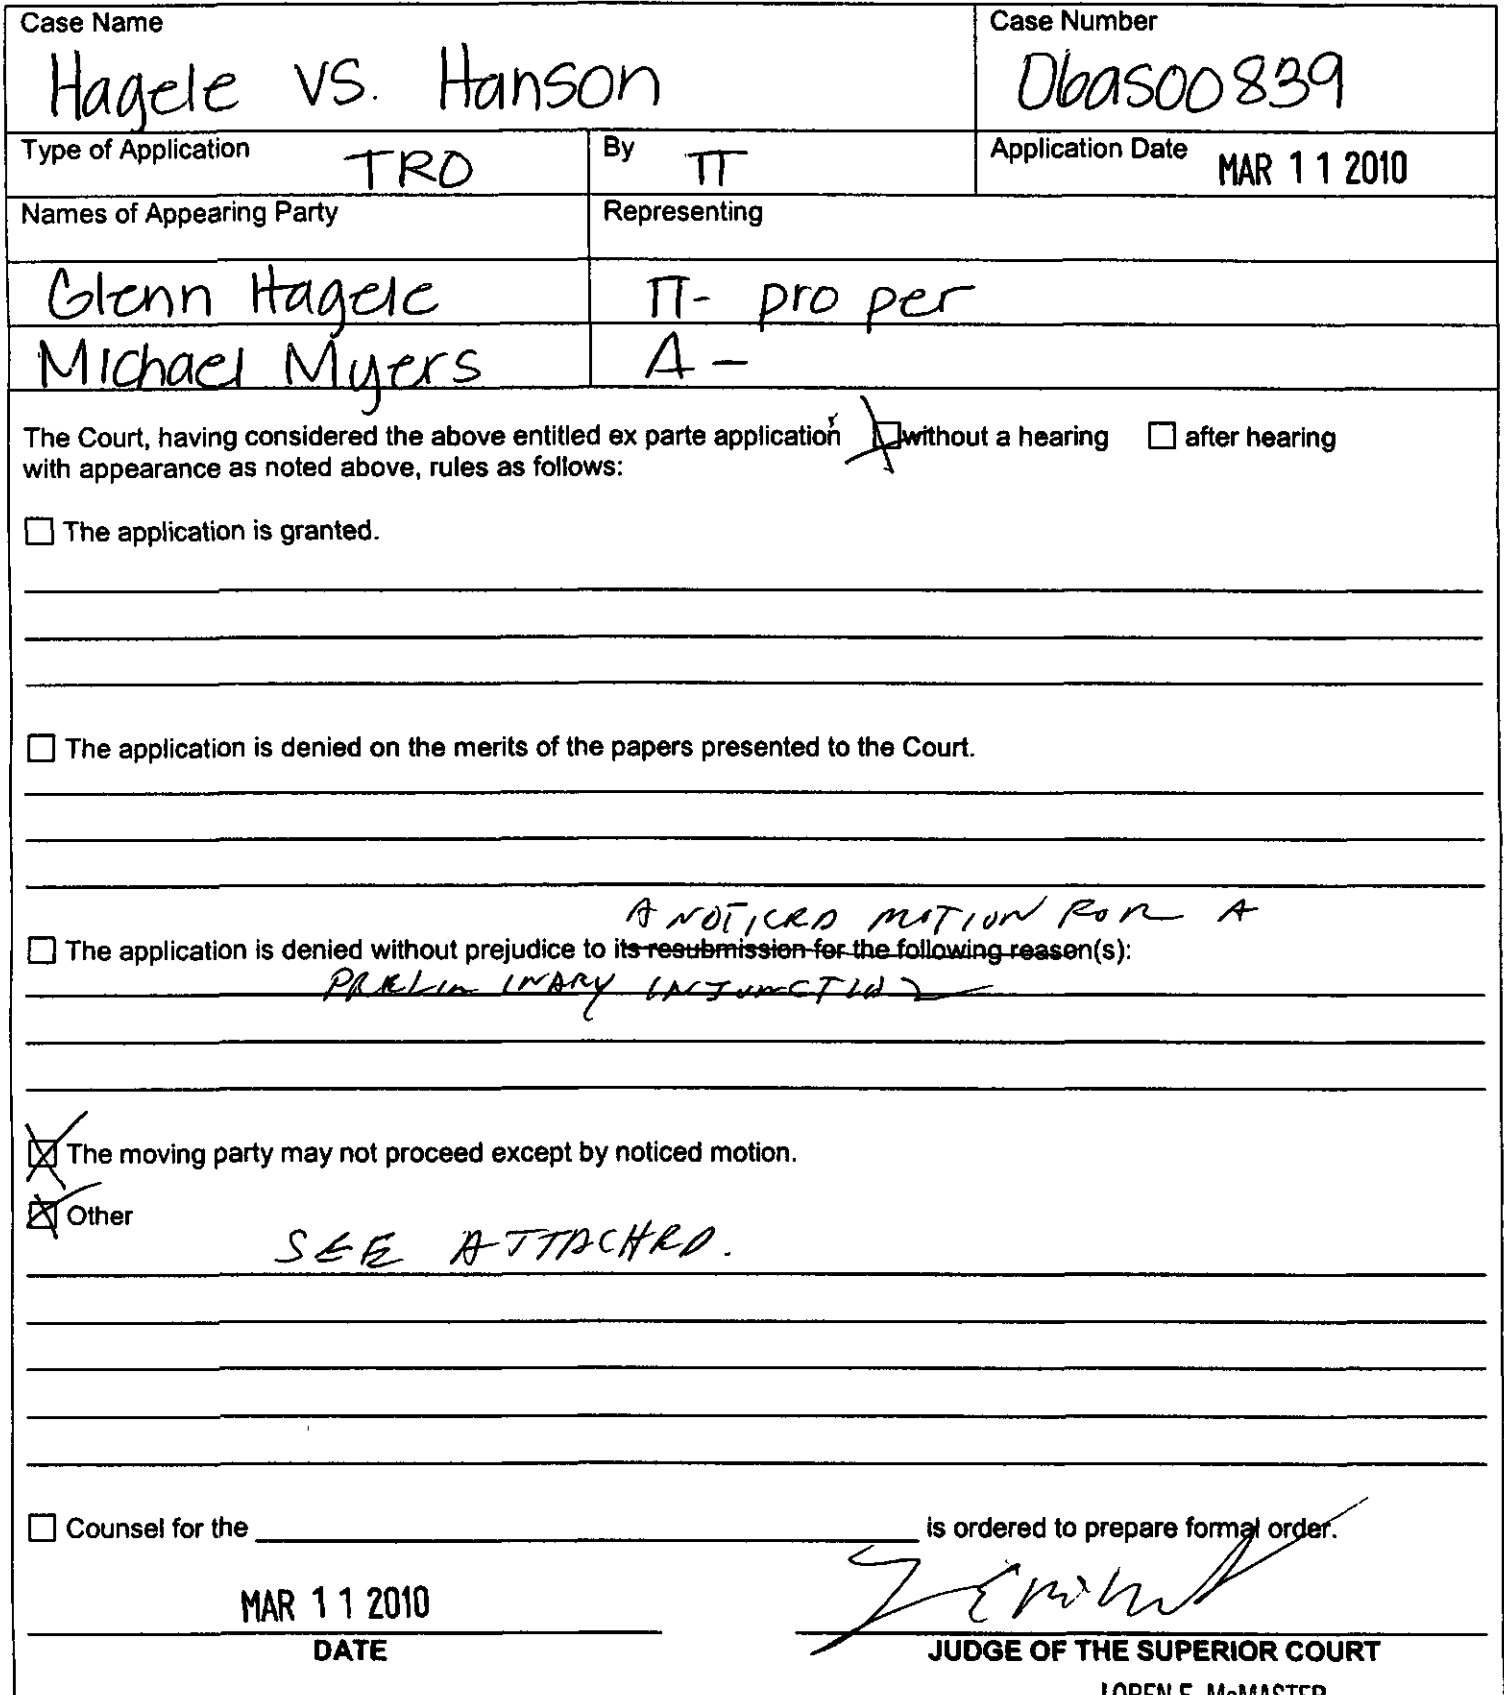 Case Name
Case Number
Hagele vs. Hanson
06as00839
Type of Application TRO
By π
Application Date MAR 11 2010
Names of Appearing Party
Representing
Glenn Hagele
π- pro per
Michael Myers
Δ -
The Court, having considered the above entitled ex parte application ☒ without a hearing ☐ after hearing
with appearance as noted above, rules as follows:
☐ The application is granted.
☐ The application is denied on the merits of the papers presented to the Court.
A NOTICED MOTION FOR A
☐ The application is denied without prejudice to its resubmission for the following reason(s):
PRELIMINARY INJUNCTION
☒ The moving party may not proceed except by noticed motion.
☒ Other
SEE ATTACHED.
☐ Counsel for the is ordered to prepare formal order.
MAR 11 2010
DATE
JUDGE OF THE SUPERIOR COURT
LOREN E. McMASTER